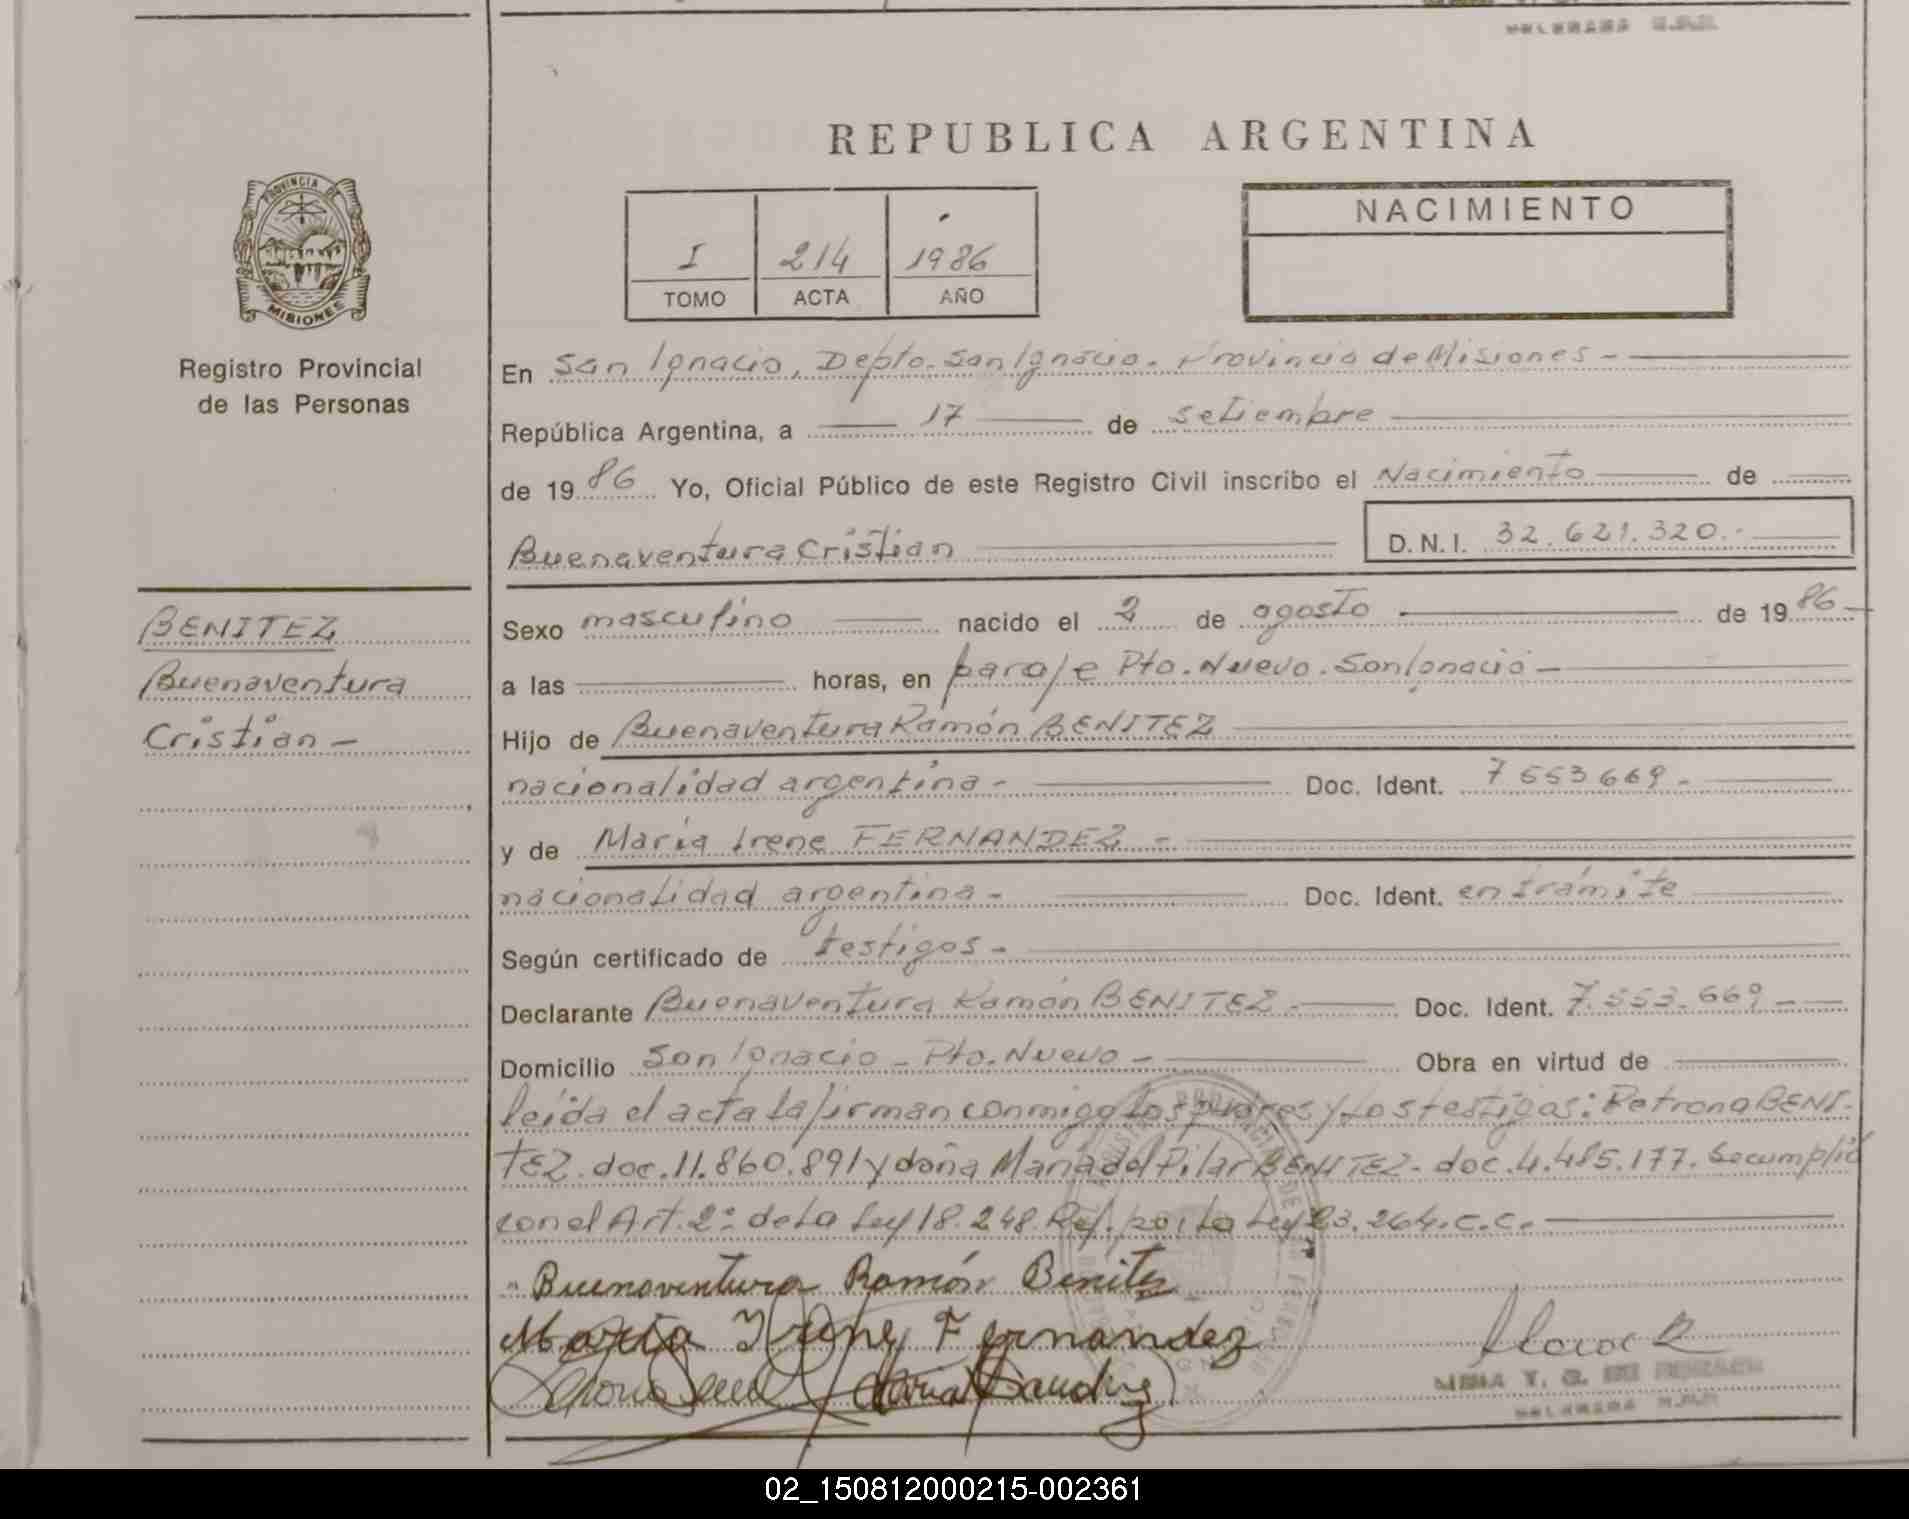 REPUBLICA ARGENTINA
PROVINCIA DE
MISIONES
Registro Provincial
de las Personas
I 214 1986
TOMO ACTA AÑO
NACIMIENTO
En San Ignacio, Depto. San Ignacio. Provincia de Misiones -
República Argentina, a 17 de setiembre
de 1986 Yo, Oficial Público de este Registro Civil inscribo el Nacimiento de
Buenaventura Cristian D.N.I. 32.621.320.-
BENITEZ
Buenaventura
Cristian -
Sexo masculino nacido el 2 de agosto de 1986
a las horas, en paraje Pto. Nuevo. San Ignacio -
Hijo de Buenaventura Ramón BENITEZ
nacionalidad argentina - Doc. Ident. 7553669 -
y de María Irene FERNANDEZ -
nacionalidad argentina - Doc. Ident. en trámite
Según certificado de testigos -
Declarante Buenaventura Ramón BENITEZ - Doc. Ident. 7.553.669 -
Domicilio San Ignacio - Pto. Nuevo - Obra en virtud de
leída el acta la firman conmigo los padres y los testigos: Petrona BENI-
TEZ. doc. 11.860.891 y doña María del Pilar BENITEZ - doc. 4.485.177. Se cumplió
con el Art. 2º de la Ley 18.248. Ref. por la Ley 23.264. C.C.
Buenaventura Ramón Benitez
María Irene Fernandez
02_150812000215-002361